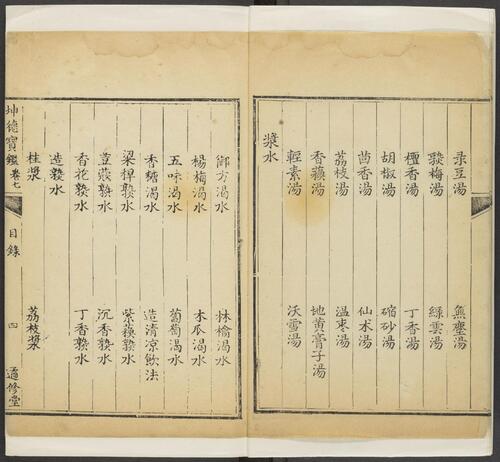 菉豆湯 無塵湯
熟梅湯 綠雲湯
檀香湯 丁香湯
胡椒湯 縮砂湯
茴香湯 仙术湯
荔枝湯 温棗湯
香蘋湯 地黄膏子湯
輕素湯 沃雪湯
漿水
御方渴水 林檎渴水
楊梅渴水 木瓜渴水
五味渴水 葡萄渴水
香糖渴水 造清凉飲法
梁稈熟水 紫蘇熟水
荳蔻熟水 沉香熟水
香花熟水 丁香熟水
造熟水
桂漿 荔枝漿
坤德寶鑑 卷七 目錄 四 適修堂